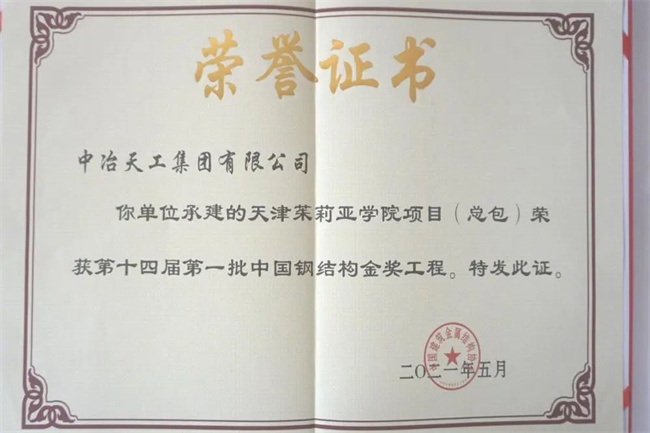 荣誉证书
中冶天工集团有限公司
你单位承建的天津茱莉亚学院项目（总包）荣
获第十四届第一批中国钢结构金奖工程。特发此证。
中国建筑金属结构协会
二〇二一年五月